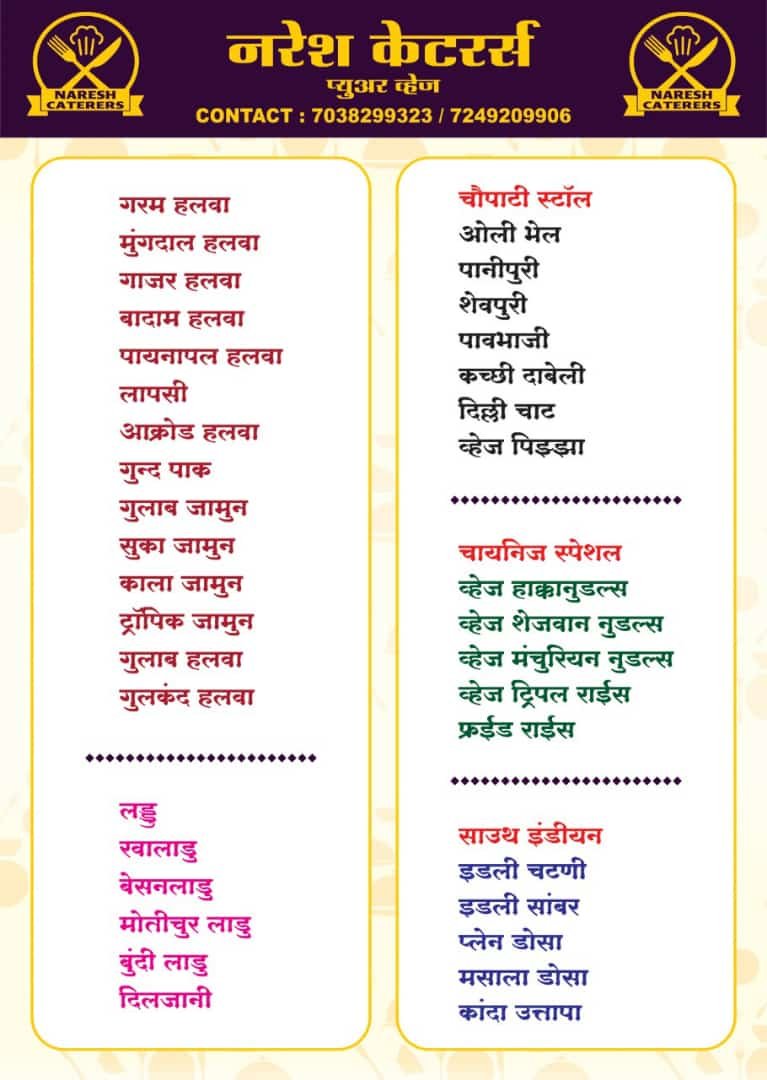 NARESH
CATERERS
नरेश केटरर्स
प्युअर व्हेज
CONTACT : 7038299323 / 7249209906
NARESH
CATERERS
गरम हलवा
मुंगदाल हलवा
गाजर हलवा
बादाम हलवा
पायनापल हलवा
लापसी
आक्रोड हलवा
गुन्द पाक
गुलाब जामुन
सुका जामुन
काला जामुन
ट्रॉपिक जामुन
गुलाब हलवा
गुलकंद हलवा
लड्डु
रवालाडु
बेसनलाडु
मोतीचुर लाडु
बुंदी लाडु
दिलजानी
चौपाटी स्टॉल
ओली भेल
पानीपुरी
शेवपुरी
पावभाजी
कच्छी दाबेली
दिल्ली चाट
व्हेज पिझ्झा
चायनिज स्पेशल
व्हेज हाक्कानुडल्स
व्हेज शेजवान नुडल्स
व्हेज मंचुरियन नुडल्स
व्हेज ट्रिपल राईस
फ्रईड राईस
साउथ इंडीयन
इडली चटणी
इडली सांबर
प्लेन डोसा
मसाला डोसा
कांदा उत्तापा